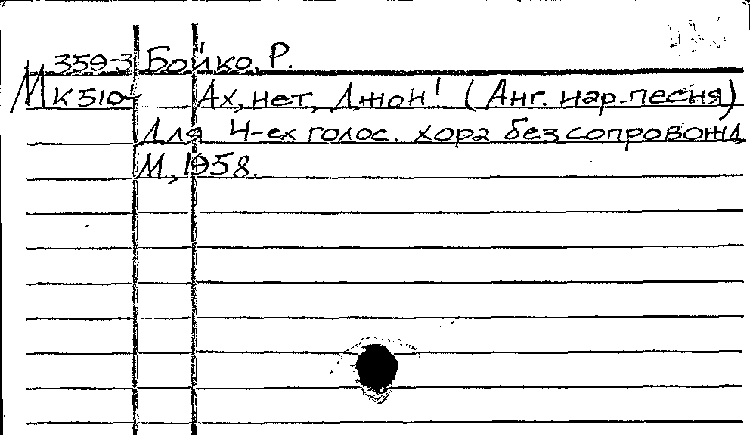 359-3 Бойко, Р.
М К510 Ах, нет, Джон! (Анг. нар. песня)
Для 4-ех голос. хора без сопровожд.
М., 1958.